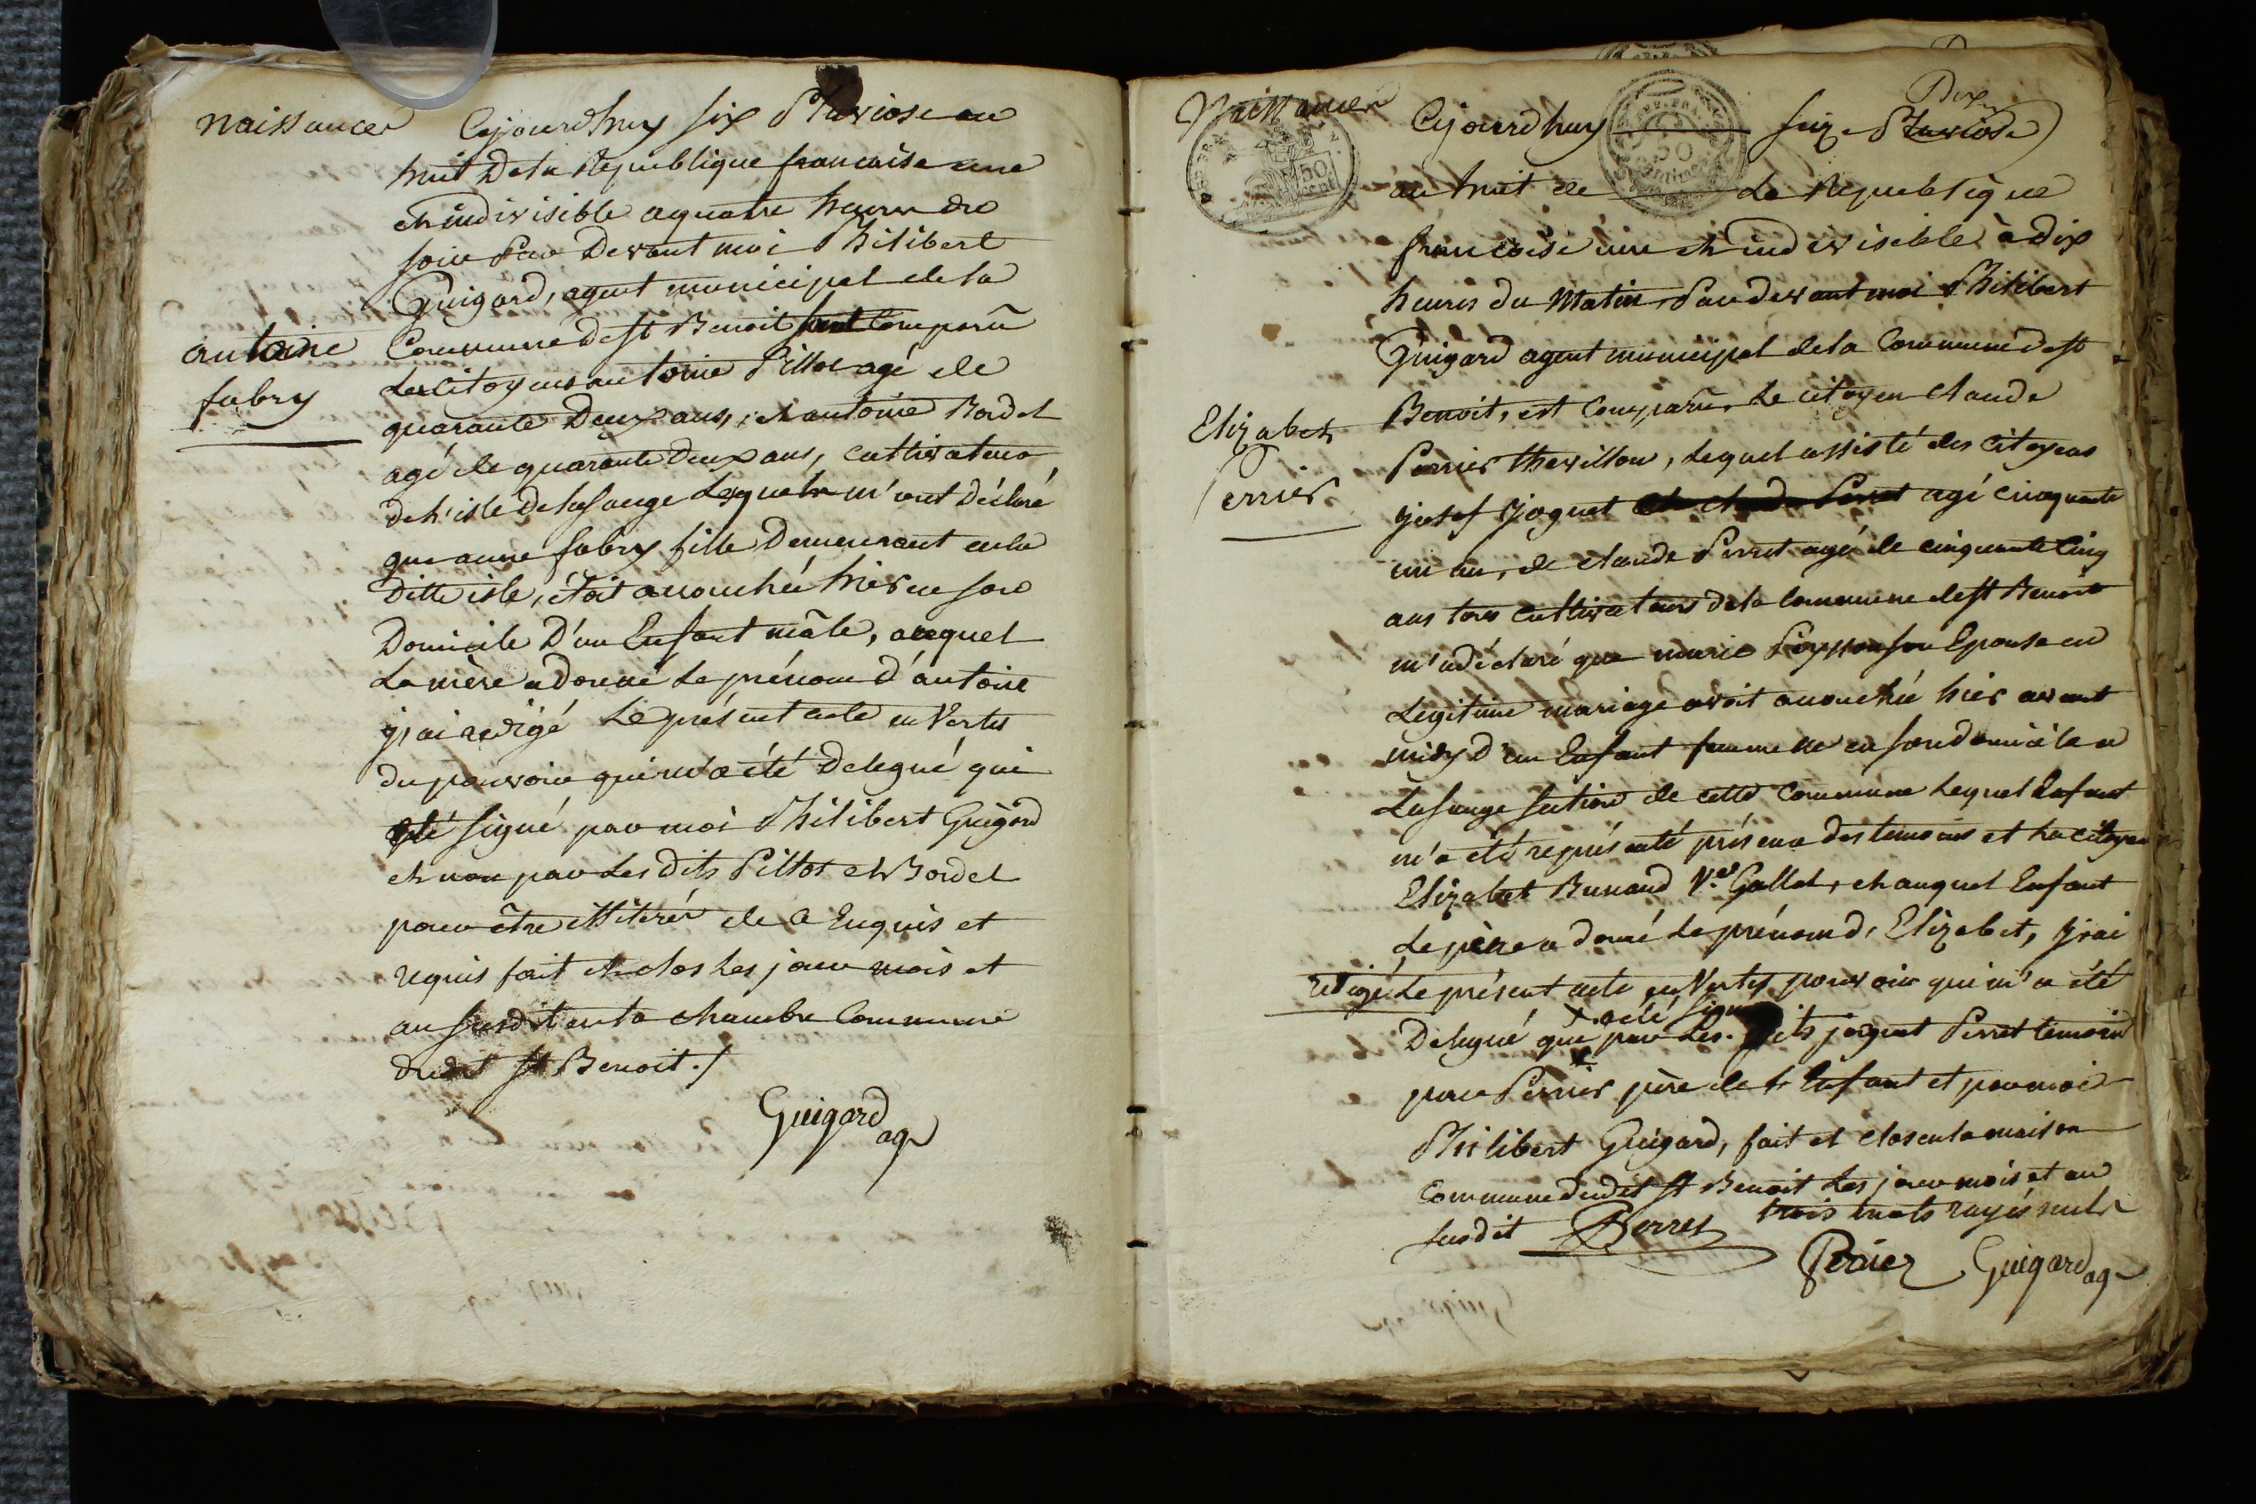 naissances
Cejourdhuy six Pluviose an
huit De la Republique francaise une
et indivisible a quatre heures du
soir Par Devant moi Philibert
Guigard, agent municipal de la
Commune de st Benoit sont Comparu
antoine
fabry
Les Citoyens antoine Pittot agé de
quarante Deux ans, et antoine Bordel
agé de quarante deux ans, cultivateurs
de l'isle de la sauge Lesquels m'ont Déclaré
que anne fabry fille Demeurant en la
Ditte isle, étoit accouchée hier en son
Domicile D'un Enfant mâle, auquel
La mère a donné Le prénom d'antoine
j'ai redigé Le présent acte en Vertu
du pouvoir qui m'a été Delegué qui
a été signé par moi Philibert Guigard
et non par Les Dits Pittot et Bordel
pour être illiterés de ce Enquis et
requis fait et clos Les jour mois et
an susdit en la chambre Commune
dudit st Benoit ./
Guigard
ag
Naissances
50
cent
50
centimes
Dix
Cejourdhuy seize Pluviose
an huit de La Republique
francoise une et indivisible à dix
heures du Matin Par devant moi Philibert
Guigard agent municipal de la Commune de st
Elizabeth
Perrier
Benoit, est Comparu Le citoyen claude
Perrier thevillon, Lequel assisté des Citoyens
josef joguet et claude Perret agé cinquante
un an, de claude Perret agé de cinquante Cinq
ans tous cultivateurs de la Commune de st Benoit
m'a déclaré que marie son Epouse en
Legitime mariage avoit accouchée hier avant
midy D'un Enfant femmelle en son domicile a
La sauge section de cette Commune Lequel Enfant
m'a été représenté présence des temoins et La citoyen
Elizabet Bunand Vve Gallet, et auquel Enfant
Le père a donné Le prénom d'Elizabet, j'ai
redigé Le présent acte en Vertu pouvoir qui m'a été
a été signé
Delegué qui par Les dits joguet Perret temoin
par Perrier père de L'Enfant et par moi
Philibert Guigard, fait et clos en la maison
Commune dudit st Benoit Les jour mois et an
susdit trois mots rayés nuls
Perret
Perrier Guigard ag